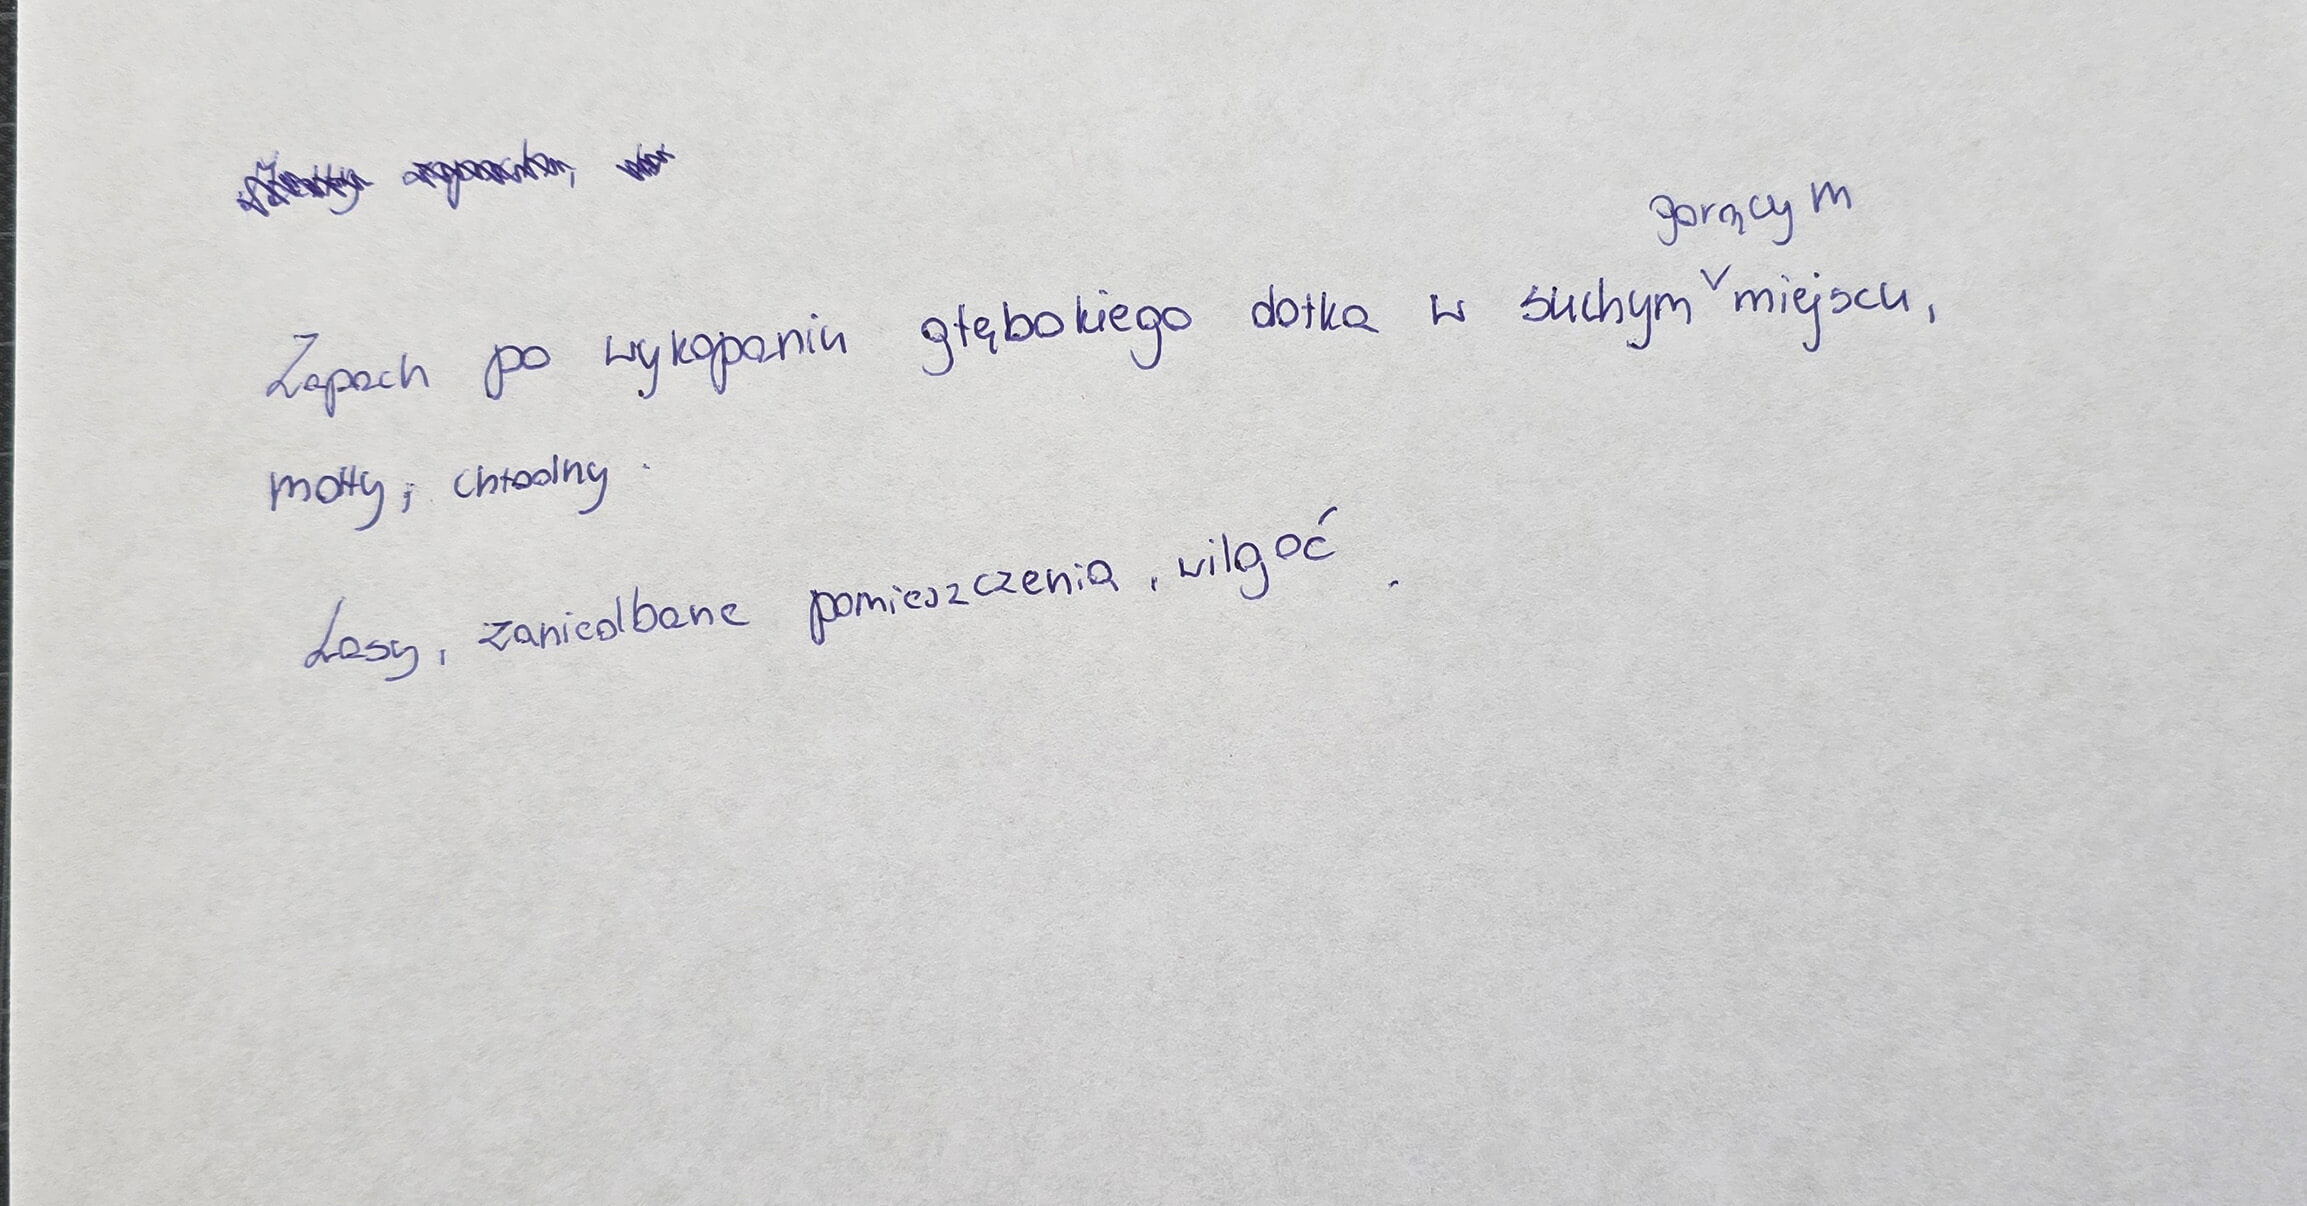 gorącym
Zapach po wykopaniu głębokiego dołka w suchym ∨ miejscu,
mdły, chłodny.
Lasy, zaniedbane pomieszczenia, wilgoć.